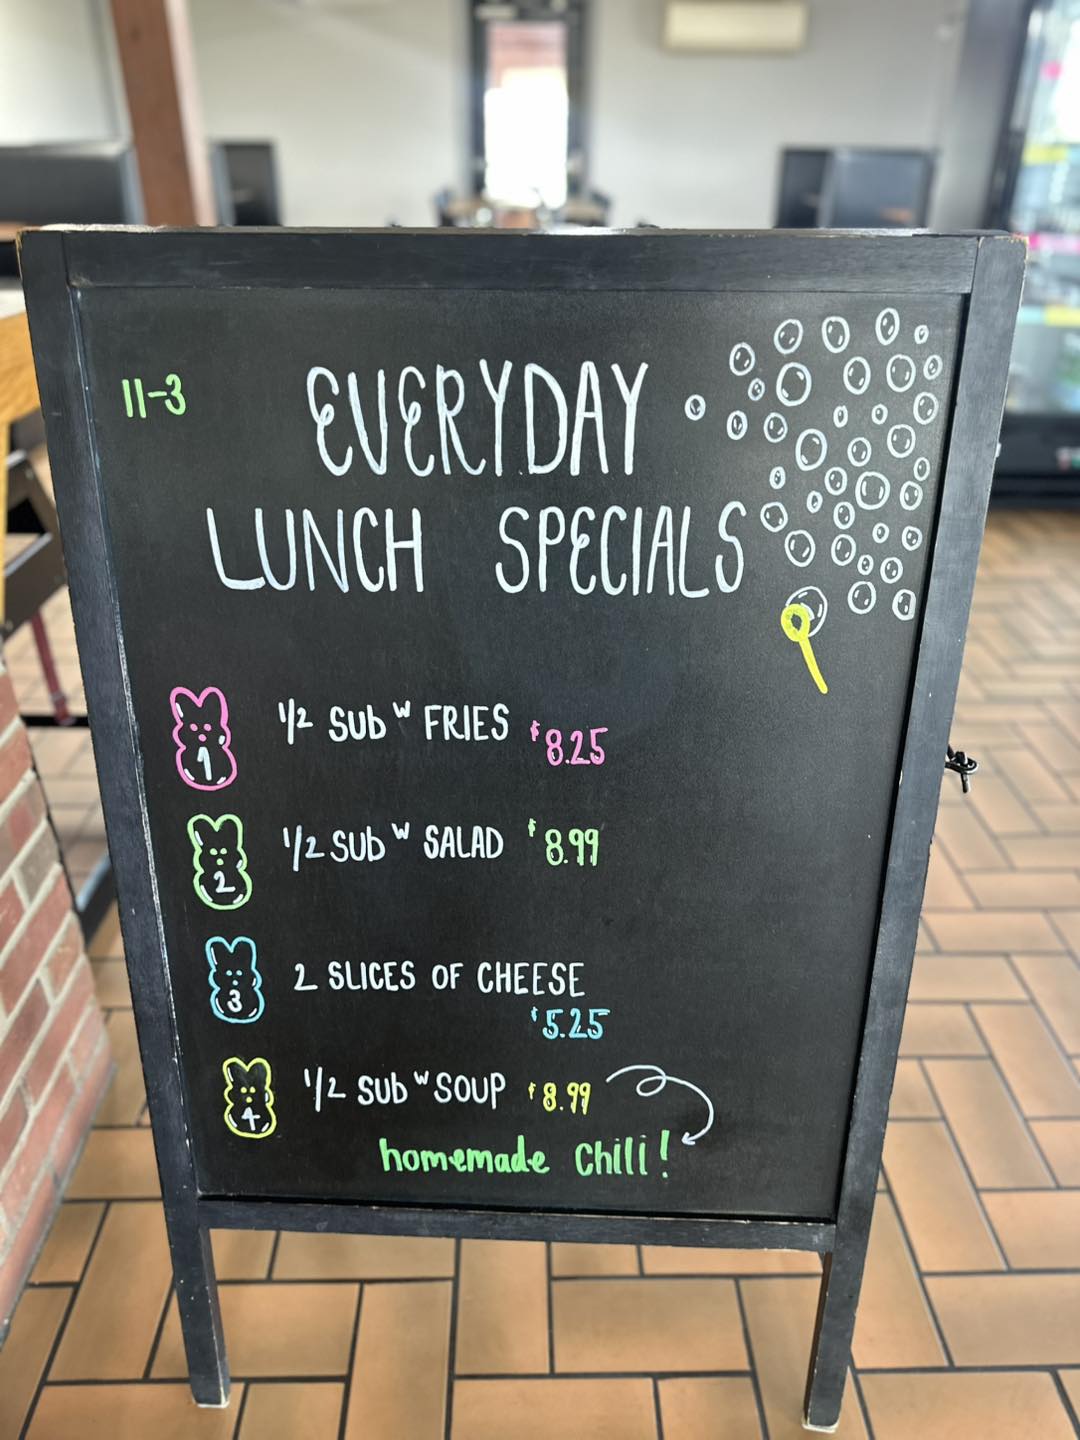 11-3
EVERYDAY
LUNCH SPECIALS
1 1/2 SUB W FRIES $8.25
2 1/2 SUB W SALAD $8.99
3 2 SLICES OF CHEESE
$5.25
4 1/2 SUB W SOUP $8.99
homemade Chili!